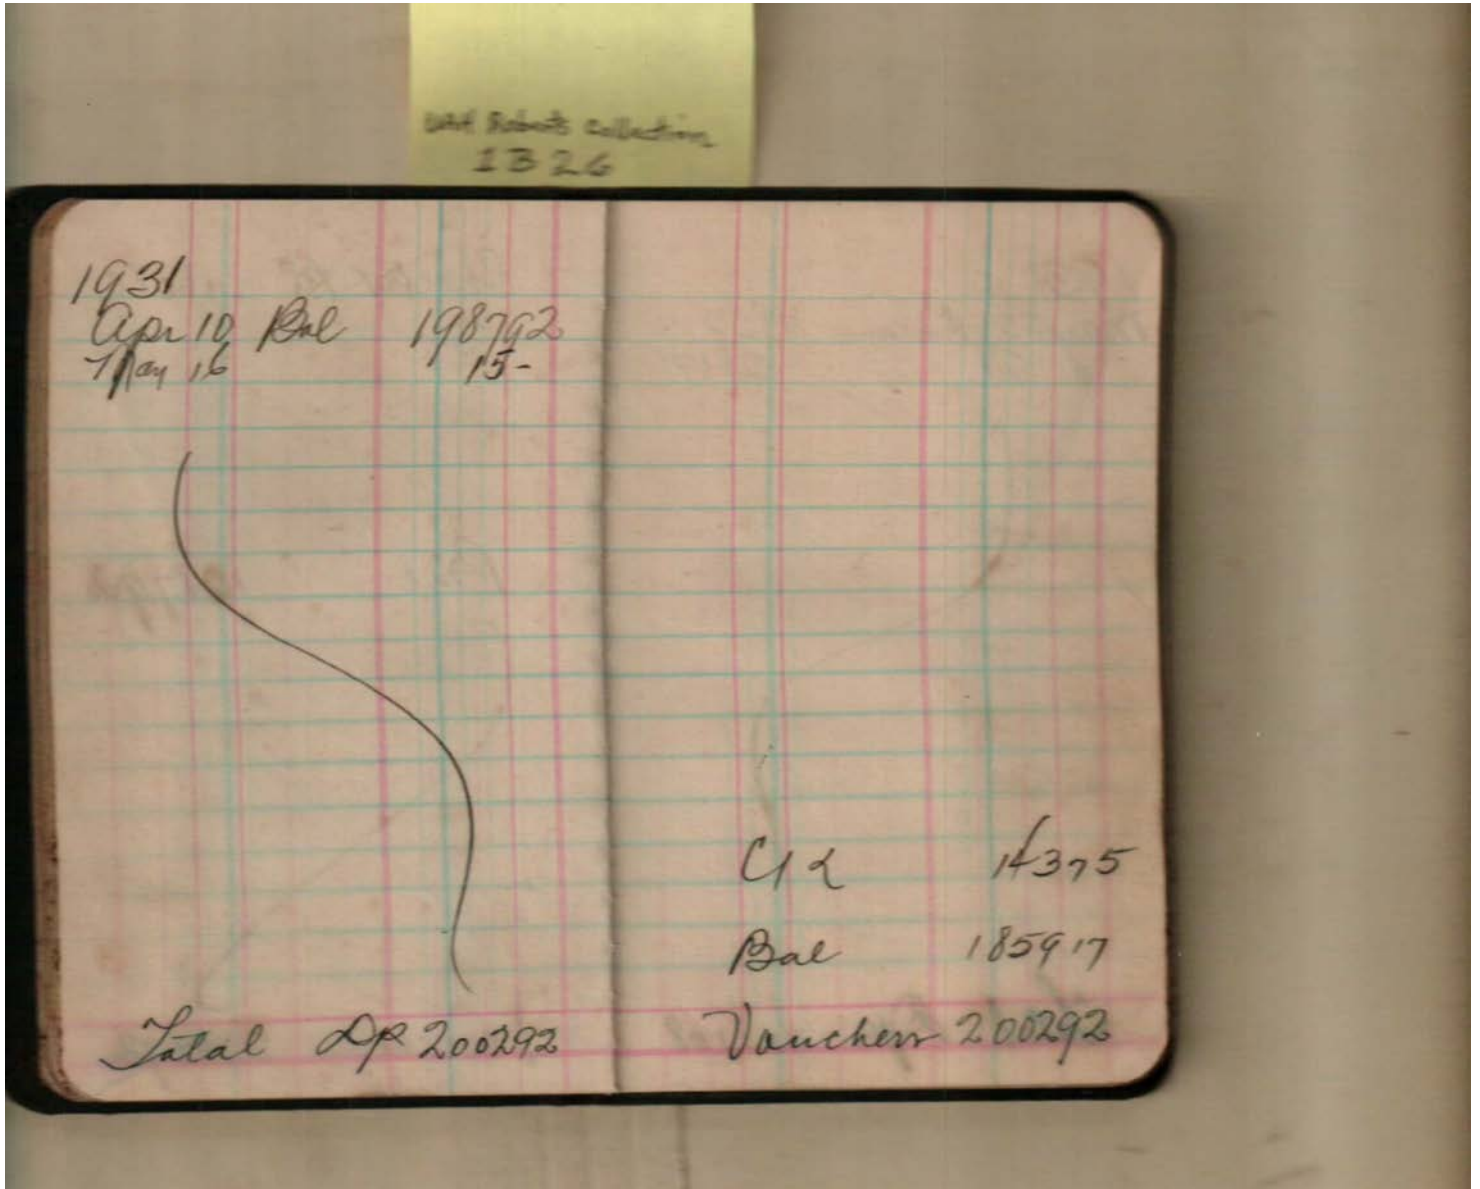 UAH Roberts Collection
1B26
1931
Apr 10 Bal 198792
May 16 15-
Total Dp 200292
Ck 14375
Bal 185917
Vouchers 200292